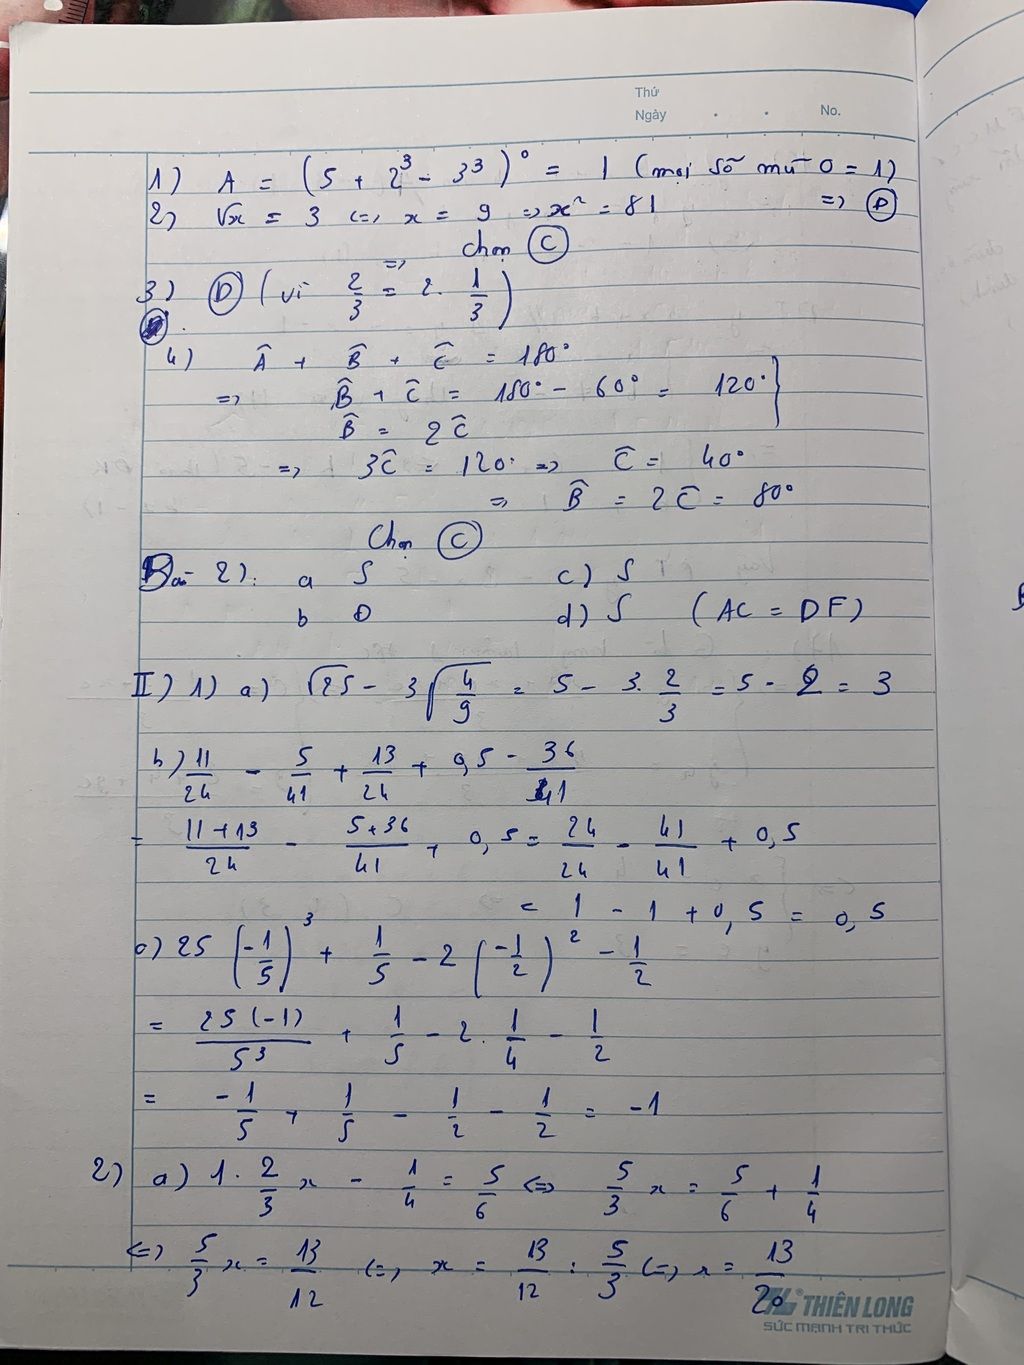 Thứ
Ngày . . No.
1) A = (5 + 2³ - 3³)⁰ = 1 (mọi số mũ 0 = 1)
2) √x = 3 <=> x = 9 => x² = 81 => D
=> chọn C
3) D (vì 2/3 = 2. 1/3)
4) Â + B̂ + Ĉ = 180°
=> B̂ + Ĉ = 180° - 60° = 120° }
B̂ = 2Ĉ
=> 3Ĉ = 120° => Ĉ = 40°
=> B̂ = 2Ĉ = 80°
Chọn C
Bài 2): a S c) S
b Đ d) S (AC = DF)
II) 1) a) √25 - 3√(4/9) = 5 - 3. 2/3 = 5 - 2 = 3
b) 11/24 - 5/41 + 13/24 + 0,5 - 36/41
= (11+13)/24 - (5+36)/41 + 0,5 = 24/24 - 41/41 + 0,5
= 1 - 1 + 0,5 = 0,5
c) 25 (-1/5)³ + 1/5 - 2 (-1/2)² - 1/2
= 25(-1)/5³ + 1/5 - 2. 1/4 - 1/2
= -1/5 + 1/5 - 1/2 - 1/2 = -1
2) a) 1. 2/3 x - 1/4 = 5/6 <=> 5/3 x = 5/6 + 1/4
<=> 5/3 x = 13/12 <=> x = 13/12 : 5/3 <=> x = 13/20
THIÊN LONG
SỨC MẠNH TRI THỨC